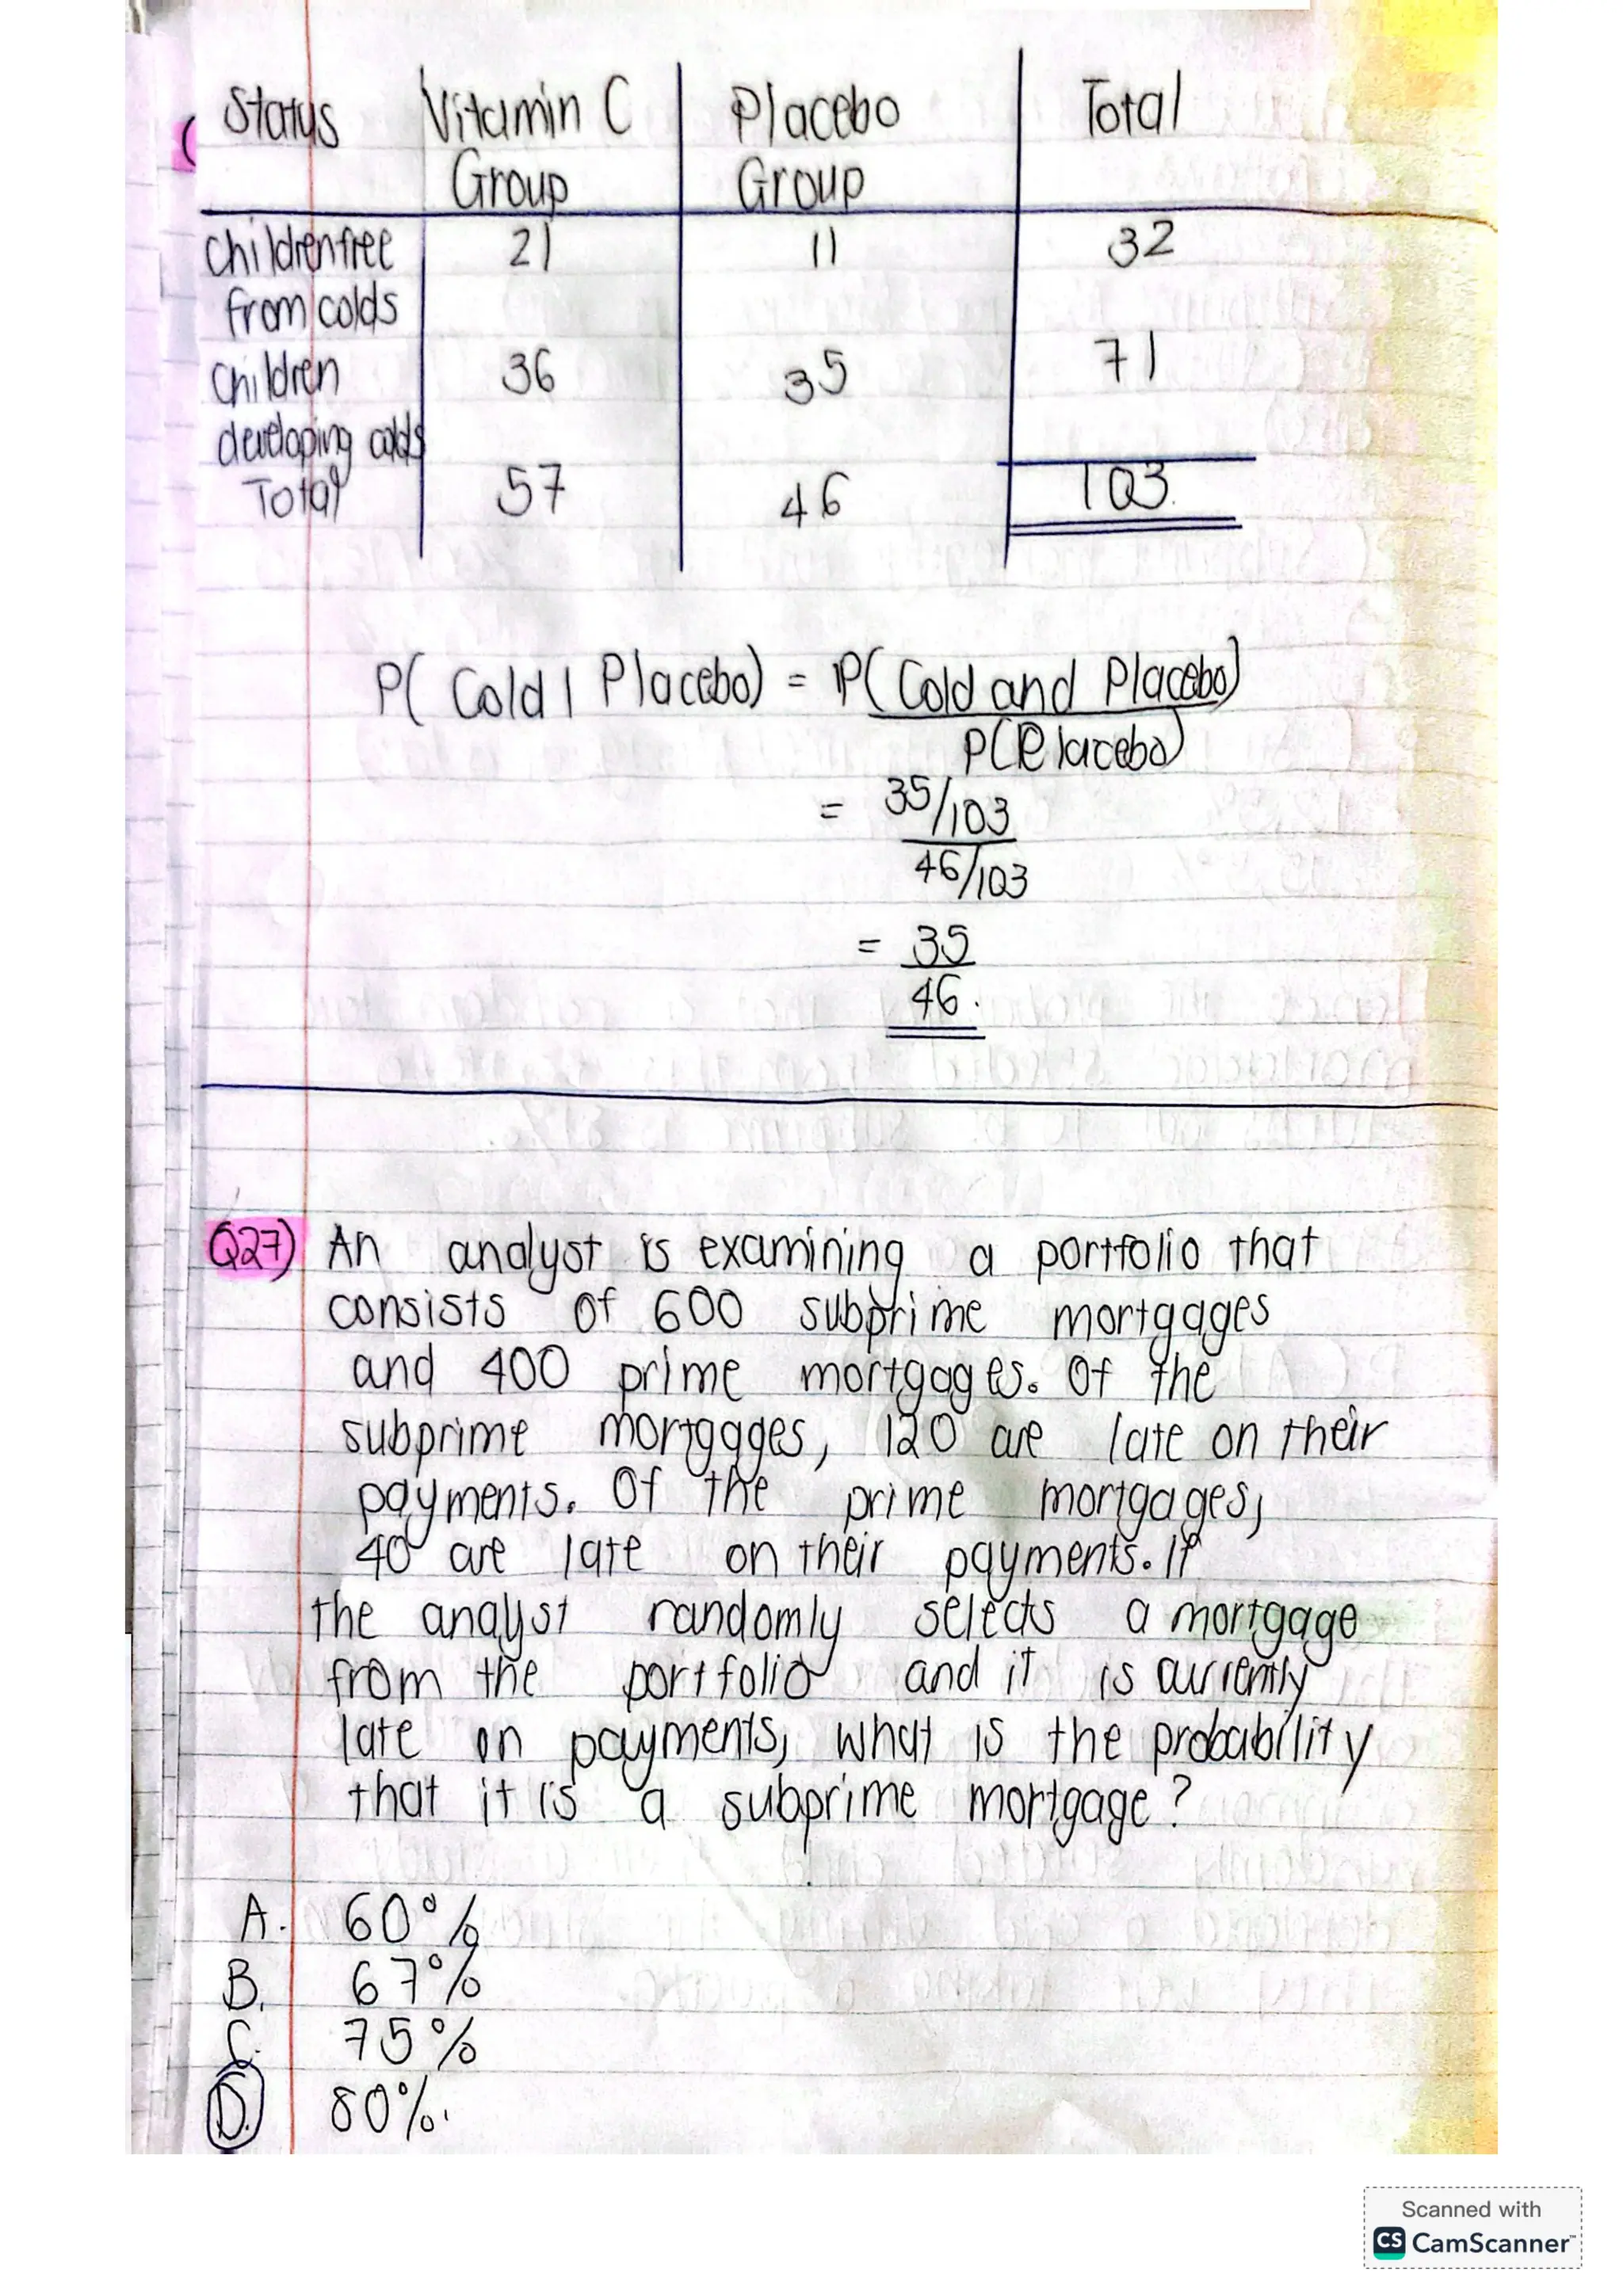 Status Vitamin C Placebo Total
Group Group
Children free 21 11 32
from colds
Children 36 35 71
developing colds
Total 57 46 103
P( Cold | Placebo) = P( Cold and Placebo)
P(Placebo)
= 35/103
46/103
= 35
46.
Q27) An analyst is examining a portfolio that
consists of 600 subprime mortgages
and 400 prime mortgages. Of the
subprime mortgages, 120 are late on their
payments. Of the prime mortgages,
40 are late on their payments. If
the analyst randomly selects a mortgage
from the portfolio and it is currently
late on payments, what is the probability
that it is a subprime mortgage?
A. 60%
B. 67%
C. 75%
D. 80%.
Scanned with
CS CamScanner